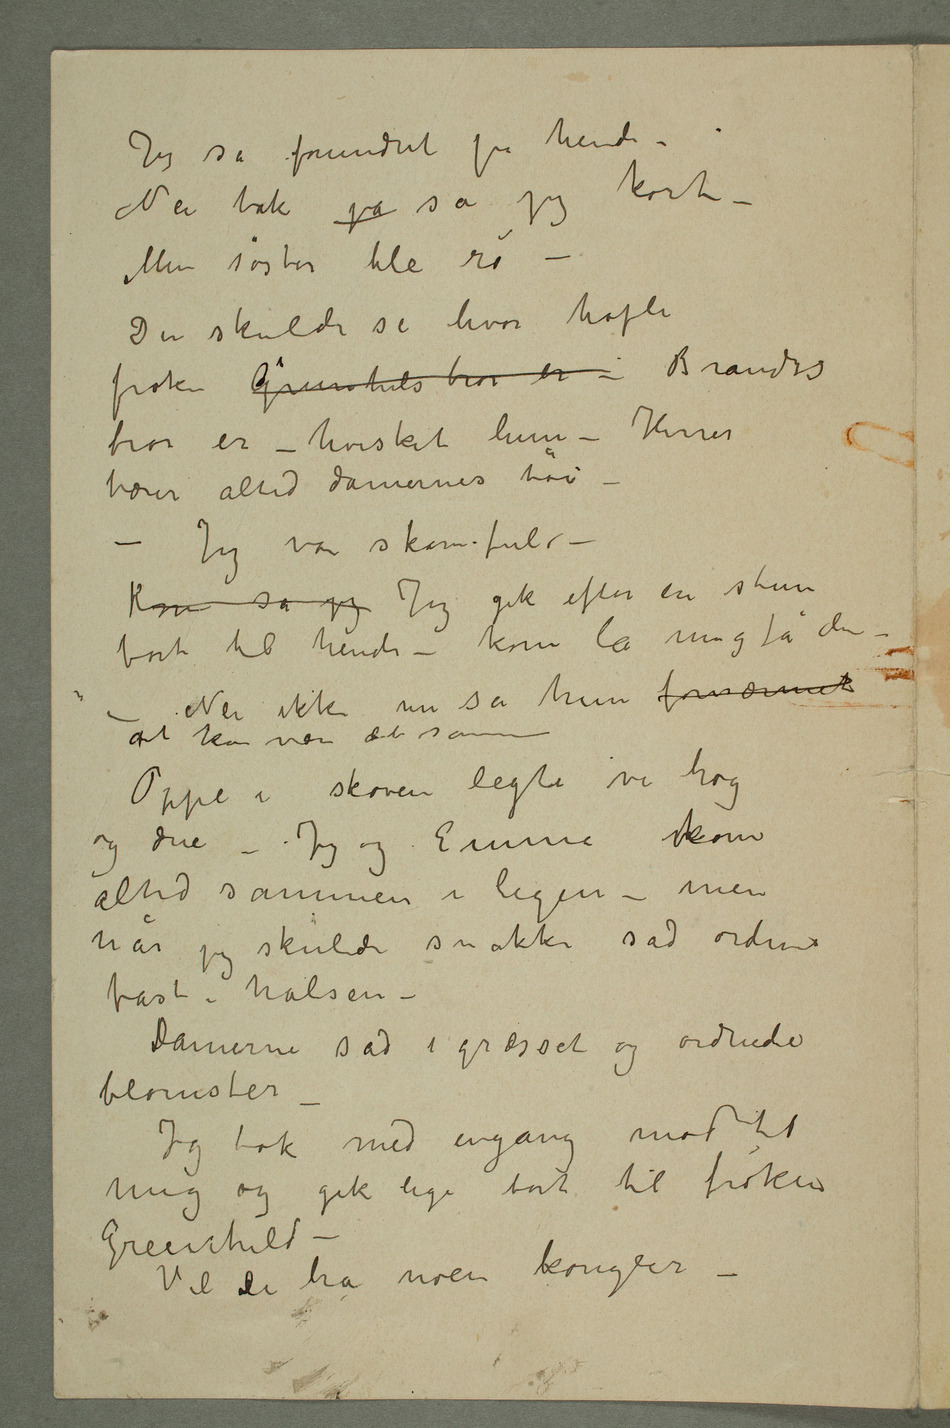 Jeg så forundret på hende –
Nei tak ja sa jeg kort –
Min søster ble rø –
Du skulde se hvor høfli
frøken Grenshils bror er – Brandts
bror er – hvisket hun – Herrer
bærer altid damernes tøi –
– Jeg var skamfuld –
Kom sa jeg Jeg gik efter en stun
bort til hende – kom la mig få den –
– Nei ikke nu sa hun fornærmet
det kan være det samme
Oppe i skoven legte vi høg
og due – Jeg og Emma kom
altid sammen i legen – men
når jeg skulde snakke sad ordene
fast i halsen –
Damerne sad i græsset og ordnede
blomster –
Jeg tok med engang mod til
mig og gik lige bort til frøken
Greenshild –
Vil De ha noen kongler –